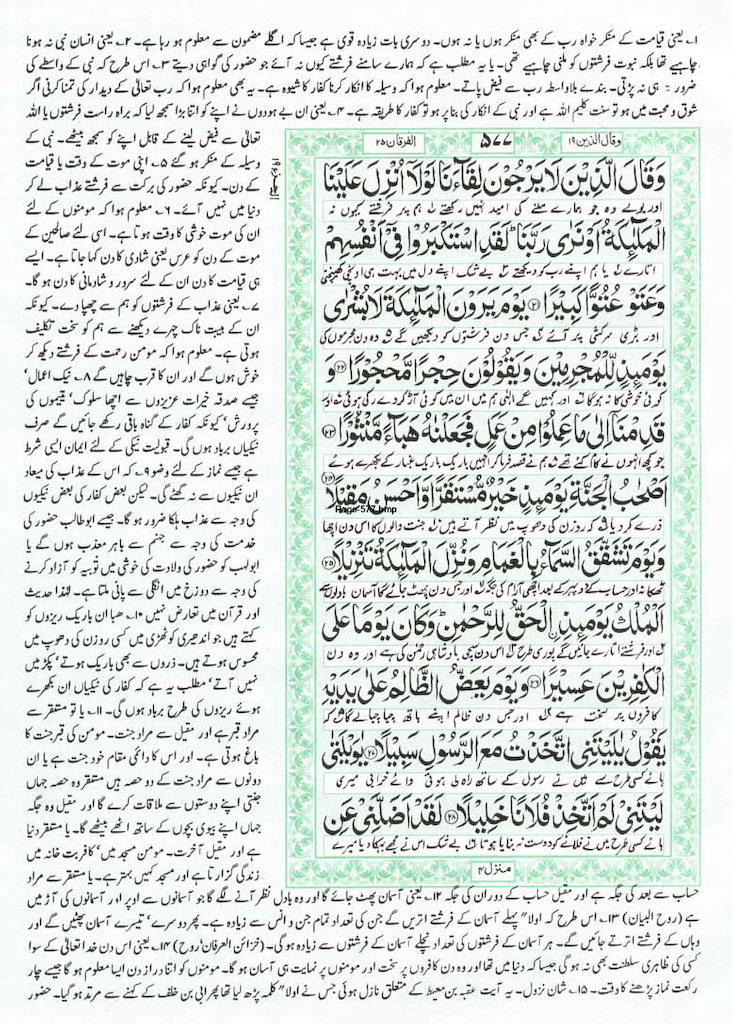 ۱۔ یعنی قیامت کے منکر خواہ رب کے بھی منکر ہوں یا نہ ہوں۔ دوسری بات زیادہ قوی ہے جیسا کہ اگلے مضمون سے معلوم ہو رہا ہے۔ ۲۔ یعنی انسان نبی نہ ہونا
چاہیے تھا بلکہ نبوت فرشتوں کو ملنی چاہیے تھی۔ یا یہ مطلب ہے کہ ہمارے سامنے فرشتے کیوں نہ آئے جو حضور کی گواہی دیتے ۳۔ اس طرح کہ نبی کے واسطے کی
ضرورت ہی نہ پڑتی۔ بندے بلاواسطہ رب سے فیض پاتے۔ معلوم ہوا کہ وسیلہ کا انکار کرنا کفار کا شیوہ ہے۔ یہ بھی معلوم ہوا کہ رب تعالیٰ کے دیدار کی تمنا کرنی اگر
شوق و محبت میں ہو تو سنت کلیم اللہ ہے اور نبی کے انکار کی بنا پر ہو تو کفار کا طریقہ ہے۔ ۴۔ یعنی ان بے ہودوں نے اپنے کو اتنا بڑا سمجھ لیا کہ براہ راست فرشتوں یا اللہ
تعالیٰ سے فیض لینے کے قابل اپنے کو سمجھ بیٹھے۔ نبی کے
وسیلہ کے منکر ہو گئے ۵۔ اپنی موت کے وقت یا قیامت
کے دن۔ کیونکہ حضور کی برکت سے فرشتے عذاب لے کر
دنیا میں نہیں آتے۔ ۶۔ معلوم ہوا کہ مومنوں کے لئے
ان کی موت خوشی کا وقت ہوتا ہے۔ اسی لئے صالحین کے
موت کے دن کو عرس یعنی شادی کا دن کہا جاتا ہے۔ ایسے
ہی قیامت کا دن ان کے لئے سرور و شادمانی کا دن ہو گا۔
۷۔ یعنی عذاب کے فرشتوں کو ہم سے چھپا دے۔ کیونکہ
ان کے ہیبت ناک چہرے دیکھنے سے ہم کو سخت تکلیف
ہوتی ہے۔ معلوم ہوا کہ مومن رحمت کے فرشتے دیکھ کر
خوش ہوں گے اور ان کا قرب چاہیں گے ۸۔ نیک اعمال‘
جیسے صدقہ خیرات عزیزوں سے اچھا سلوک‘ یتیموں کی
پرورش‘ کیونکہ کفار کے گناہ باقی رکھے جائیں گے صرف
نیکیاں برباد ہوں گی۔ قبولیت نیکی کے لئے ایمان ایسی شرط
ہے جیسے نماز کے لئے وضو ۹۔ کہ اس کے عذاب کی میعاد
ان نیکیوں سے نہ گھٹے گی۔ لیکن بعض کفار کی بعض نیکیوں
کی وجہ سے عذاب ہلکا ضرور ہو گا۔ جیسے ابوطالب حضور کی
خدمت کی وجہ سے جہنم سے باہر معذب ہوں گے یا
ابولہب کو حضور کی ولادت کی خوشی میں ثویبہ کو آزاد کرنے
کی وجہ سے دوزخ میں انگلی سے پانی ملتا ہے۔ لہٰذا حدیث
اور قرآن میں تعارض نہیں ۱۰۔ ھبا ان باریک ریزوں کو
کہتے ہیں جو اندھیری کوٹھڑی میں کسی روزن کی دھوپ میں
محسوس ہوتے ہیں۔ ذروں سے بھی باریک ہوتے‘ پکڑ میں
نہیں آتے‘ مطلب یہ ہے کہ کفار کی نیکیاں ان بکھرے
ہوئے ریزوں کی طرح برباد ہوں گی۔ ۱۱۔ یا تو مستقر سے
مراد قبر ہے اور مقیل سے مراد جنت۔ مومن کی قبر جنت کا
باغ ہوتی ہے۔ اور اس کا دائمی مقام خود جنت ہے یا ان
دونوں سے مراد جنت کے دو حصہ ہیں مستقر وہ حصہ جہاں
جنتی اپنے دوستوں سے ملاقات کرے گا اور مقیل وہ جگہ
جہاں اپنے بیوی بچوں کے ساتھ اٹھے بیٹھے گا۔ یا مستقر دنیا
ہے اور مقیل آخرت۔ مومن مسجد میں‘ کافر بت خانہ میں
زندگی گزارتا ہے اور مسجد کہیں بہتر ہے۔ یا مستقر سے مراد
وقال الذین ۱۹
۵۷۷
الفرقان ۲۵
وَقَالَ الَّذِيْنَ لَا يَرْجُوْنَ لِقَآءَنَا لَوْلَآ اُنْزِلَ عَلَيْنَا
اور بولے وہ جو ہمارے ملنے کی امید نہیں رکھتے ہم پر فرشتے کیوں نہ
الْمَلٰٓئِكَةُ اَوْ نَرٰى رَبَّنَا ؕ لَقَدِ اسْتَكْبَرُوْا فِيْٓ اَنْفُسِهِمْ
اتارے یا ہم اپنے رب کو دیکھتے بے شک اپنے دل میں بہت ہی اونچی کھینچی
وَعَتَوْ عُتُوًّا كَبِيْرًا ﴿۲۱﴾ يَوْمَ يَرَوْنَ الْمَلٰٓئِكَةَ لَا بُشْرٰى
اور بڑی سرکشی پر آئے جس دن فرشتوں کو دیکھیں گے وہ دن مجرموں کی
يَوْمَئِذٍ لِّلْمُجْرِمِيْنَ وَيَقُوْلُوْنَ حِجْرًا مَّحْجُوْرًا ﴿۲۲﴾ وَ
کوئی خوشی کا نہ ہوگا اور کہیں گے الٰہی ہم میں ان میں کوئی آڑ کردے رکی ہوئی اور
قَدِمْنَآ اِلٰى مَا عَمِلُوْا مِنْ عَمَلٍ فَجَعَلْنٰهُ هَبَآءً مَّنْثُوْرًا ﴿۲۳﴾
جو کچھ انہوں نے کام کئے تھے ہم نے قصد فرما کر انہیں باریک باریک غبار کے بکھرے ہوئے
اَصْحٰبُ الْجَنَّةِ يَوْمَئِذٍ خَيْرٌ مُّسْتَقَرًّا وَّاَحْسَنُ مَقِيْلًا ﴿۲۴﴾
Page-577.bmp
ذرے کر دیا کہ روزن کی دھوپ میں نظر آتے ہیں جنت والوں کا اس دن اچھا
وَيَوْمَ تَشَقَّقُ السَّمَآءُ بِالْغَمَامِ وَنُزِّلَ الْمَلٰٓئِكَةُ تَنْزِيْلًا ﴿۲۵﴾
ٹھکانہ اور حساب کے دوپہر کے بعد اچھی آرام کی جگہ اور جس دن پھٹ جائے گا آسمان بادلوں سے
اَلْمُلْكُ يَوْمَئِذِ ِۨالْحَقُّ لِلرَّحْمٰنِ ؕ وَكَانَ يَوْمًا عَلَى
اور فرشتے اتارے جائیں گے پوری طرح اس دن سچی بادشاہی رحمن کی ہے اور وہ دن
الْكٰفِرِيْنَ عَسِيْرًا ﴿۲۶﴾ وَيَوْمَ يَعَضُّ الظَّالِمُ عَلٰى يَدَيْهِ
کافروں پر سخت ہے اور جس دن ظالم اپنے ہاتھ چبا چبالے گا کہ
يَقُوْلُ يٰلَيْتَنِى اتَّخَذْتُ مَعَ الرَّسُوْلِ سَبِيْلًا ﴿۲۷﴾ يٰوَيْلَتٰى
ہائے کسی طرح سے میں نے رسول کے ساتھ راہ لی ہوتی وائے خرابی میری
لَيْتَنِيْ لَمْ اَتَّخِذْ فُلَانًا خَلِيْلًا ﴿۲۸﴾ لَقَدْ اَضَلَّنِيْ عَنِ
ہائے کسی طرح میں نے فلانے کو دوست نہ بنایا ہوتا بے شک اس نے مجھے بہکا دیا میرے
منزل ۴
حساب سے بعد کی جگہ ہے اور مقیل حساب کے دوران کی جگہ ۱۲۔ یعنی آسمان پھٹ جائے گا اور وہ بادل نظر آنے لگے گا جو آسمانوں سے اوپر اور آسمانوں کی آڑ میں
ہے (روح البیان) ۱۳۔ اس طرح کہ اولا" پہلے آسمان کے فرشتے اتریں گے جن کی تعداد تمام جن و انس سے زیادہ ہے۔ پھر دوسرے‘ تیسرے آسمان پھٹیں گے اور
وہاں کے فرشتے اترتے جائیں گے۔ ہر آسمان کے فرشتوں کی تعداد نچلے آسمان کے فرشتوں سے زیادہ ہو گی۔ (خزائن العرفان‘ روح) ۱۴۔ یعنی اس دن خدا تعالیٰ کے سوا
کسی کی ظاہری سلطنت بھی نہ ہو گی جیسا کہ دنیا میں تھا اور وہ دن کافروں پر سخت اور مومنوں پر نہایت ہی آسان ہو گا۔ مومنوں کو اتنا دراز دن ایسا معلوم ہو گا جیسے چار
رکعت نماز پڑھنے کا وقت۔ ۱۵۔ شان نزول۔ یہ آیت عقبہ بن معیط کے متعلق نازل ہوئی جس نے اولا" کلمہ پڑھ لیا تھا پھر ابی بن خلف کے کہنے سے مرتد ہو گیا۔ حضور